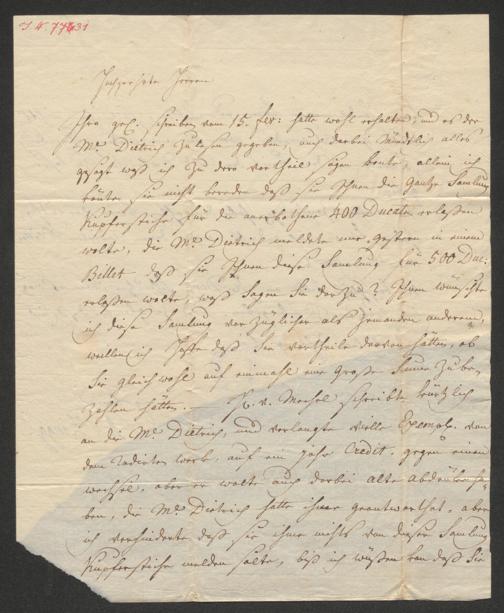 I. N. 77431
Hochgeehrte Herren
Ihro geh. schreiben vom 15. Fev: hatte wohl erhalten, und es der
Me Dietrich zu lesen gegeben, auch darbei Mündlich alles
gesagt waß ich zu dero vortheile sagen konte, allein ich
konte sie nicht bereden daß sie Ihnen die Gantze Samlung
Kupferstiche für die anerbothene 400 Ducaten erlaßen
wolte, die Me Dietrich meldete mir gestern in einem
Billet daß sie Ihnen diese Samlung für 500 Duc:
erlaßen wolte, waß sagen Sie darzu? Ihnen wünschte
ich diese Samlung vorzüglicher als jemanden anderem,
weillen ich hoffe daß Sie vortheile darvon hätten, ob
Sie gleich wohl auf einmahl eine große Suma zu be-
zahlen hätten. — H. v. Mechel schreibte kürtzlich
an die Me Dietrich, und verlangte volle Exempl. von
dem radirten werk, auf ein jahr Credit, gegen einen
wechsel, aber er wolte auch darbei alte abdrücke ha-
ben, die Me Dietrich hatte ihme geantworthet, aber
ich verhinderte daß sie ihme nichts von dieser Samlung
Kupferstiche melden solte, biß ich wüßen kan daß Sie